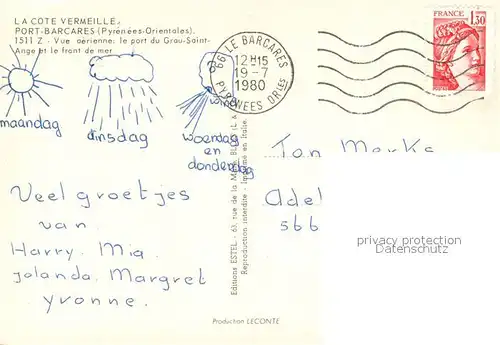 LA COTE VERMEILLE.
PORT-BARCARES (Pyrénées-Orientales).
1511 Z - Vue aérienne: le port du Grau-Saint-
Ange et le front de mer
66 LE BARCARES
12H15
19-7
1980
PYRENEES ORles
FRANCE
1,30
wind
maandag
dinsdag
woendag
en
donderdag
Veel groetjes
van
Harry. Mia.
Jolanda. Margret
Yvonne.
Editions ESTEL - 63, rue de la
Reproduction interdite - Imprimé en Italie.
Production LECONTE
Jan
Adel
566
privacy protection
Datenschutz